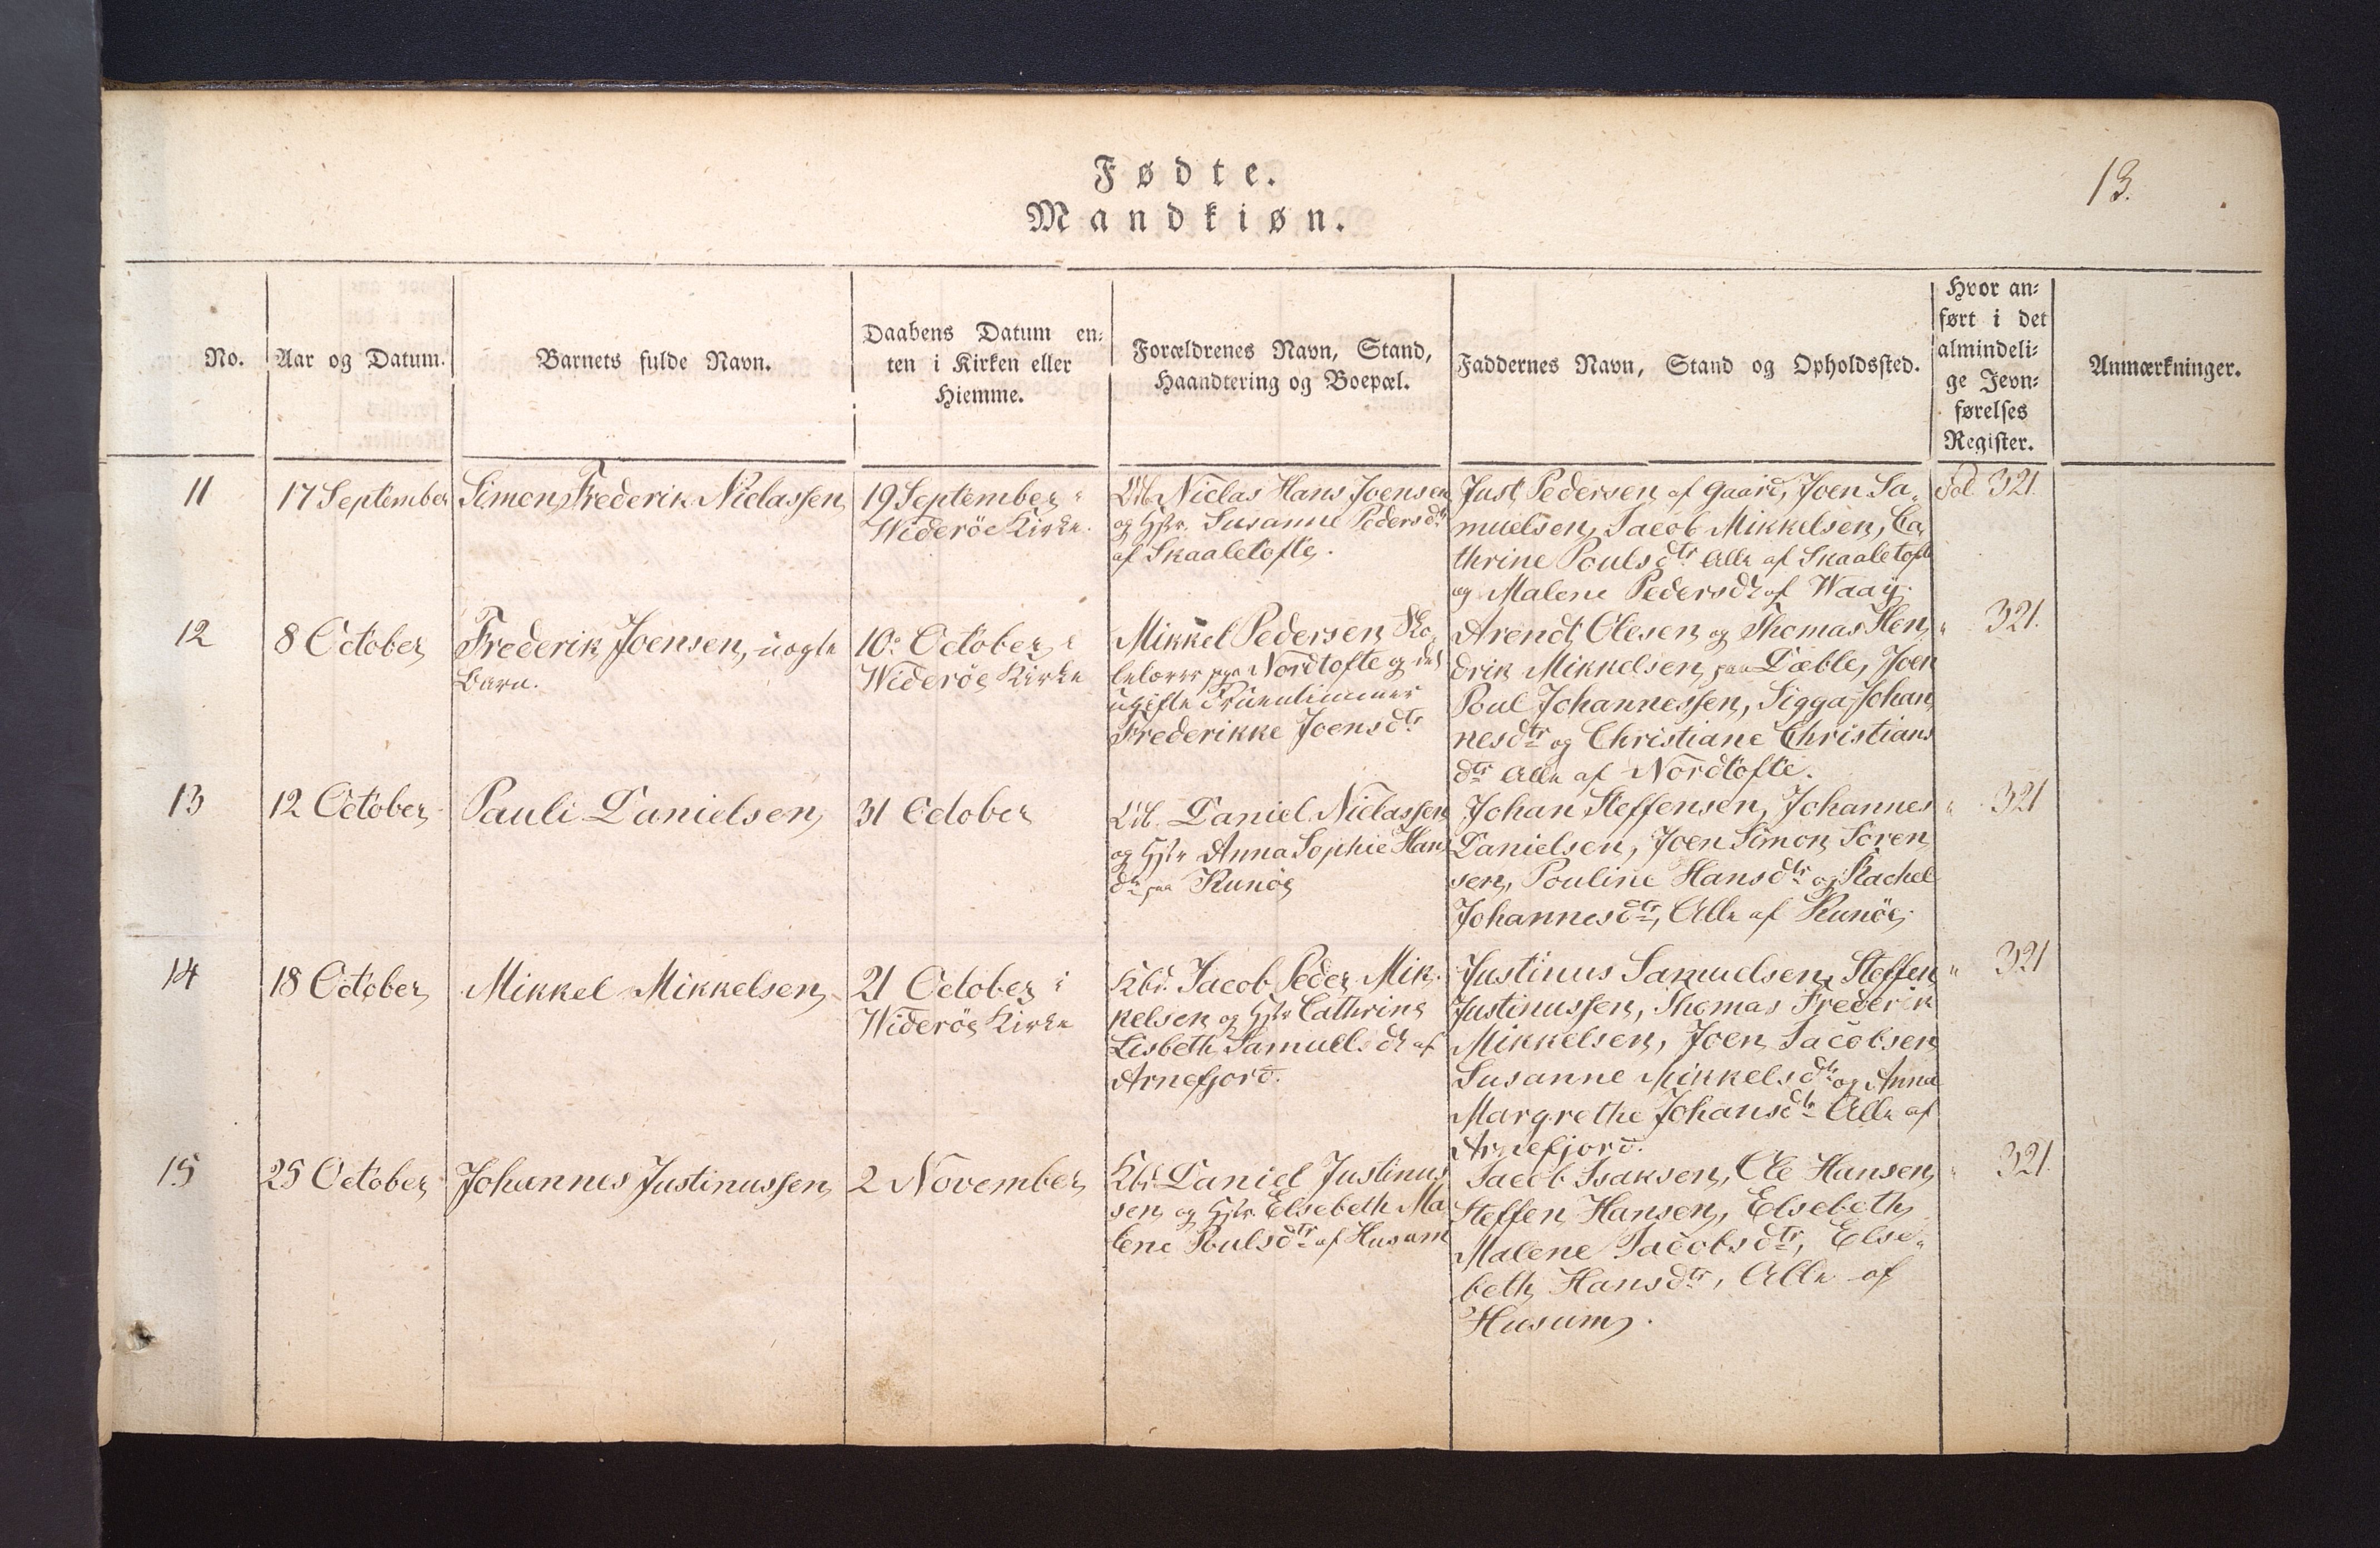 Fødte.
Mandkiøn.
13.
No.
Aar og Datum.
Barnets fulde Navn.
Daabens Datum en-
ten i Kirken eller
Hiemme.
Forældrenes Navn, Stand,
Haandtering og Boepæl.
Faddernes Navn, Stand og Opholdssted.
Hvor an-
ført i det
almindeli-
ge Jevn-
førelses
Register.
Anmærkninger.
11
17 September
Simon Frederik Niclassen
19 September i
Wideröe Kirke.
Niclas Hans Joensen
og Hstr. Susanne Pedersdtr
af Skaaletofte.
Just Pedersen af Gaard, Joen Sa-
muelsen, Jacob Mikkelsen, Ca-
thrine Poulsdtr Alle af Skaaletofte
og Malene Pedersdtr af Waaÿ.
Fol. 321.
12
8 October
Frederik Joensen, uægte
Barn.
10 October i
Wideröe Kirke
Mikkel Pedersen Sko-
lelærer paa Nordtofte og det
ugifte Fruentimmer
Frederikke Joensdtr
Arendt Olesen og Thomas Hen-
drik Mikkelsen paa Dæble, Joen
Poul Johannessen, Sigga Johan-
nesdtr og Christiane Christians
dtr Alle af Nordtofte.
" 321.
13
12 October
Pauli Danielsen
31 October
Daniel Niclassen
og Hstr Anna Sophie Hans
dtr paa Kunöe
Johan Steffensen, Johannes
Danielsen, Joen Simon Sören
sen, Pouline Hansdtr og Rachel
Johannesdtr, Alle af Kunöe.
" 321
14
18 October
Mikkel Mikkelsen
21 October i
Wideröe Kirke
Kbd. Jacob Peder Mik-
kelsen og Hstr Cathrine
Lisbeth Samuelsdtr af
Arnefjord.
Justinus Samuelsen, Steffen
Justinussen, Thomas Frederik
Mikkelsen, Joen Jacobsen
Susanne Mikkelsdtr og Anna
Margrethe Johansdtr Alle af
Arnefjord.
" 321
15
25 October
Johannes Justinussen
2 November
Kbd. Daniel Justinus
sen og Hstr. Elsebeth Ma-
lene Poulsdtr af Husum
Jacob Isaksen, Ole Hansen
Steffen Hansen, Elsebeth
Malene Jacobsdtr, Else-
beth Hansdtr, Alle af
Husum.
" 321.